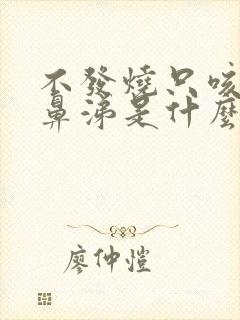 不發燒只咳
鼻涕是什麼
廖仲愷